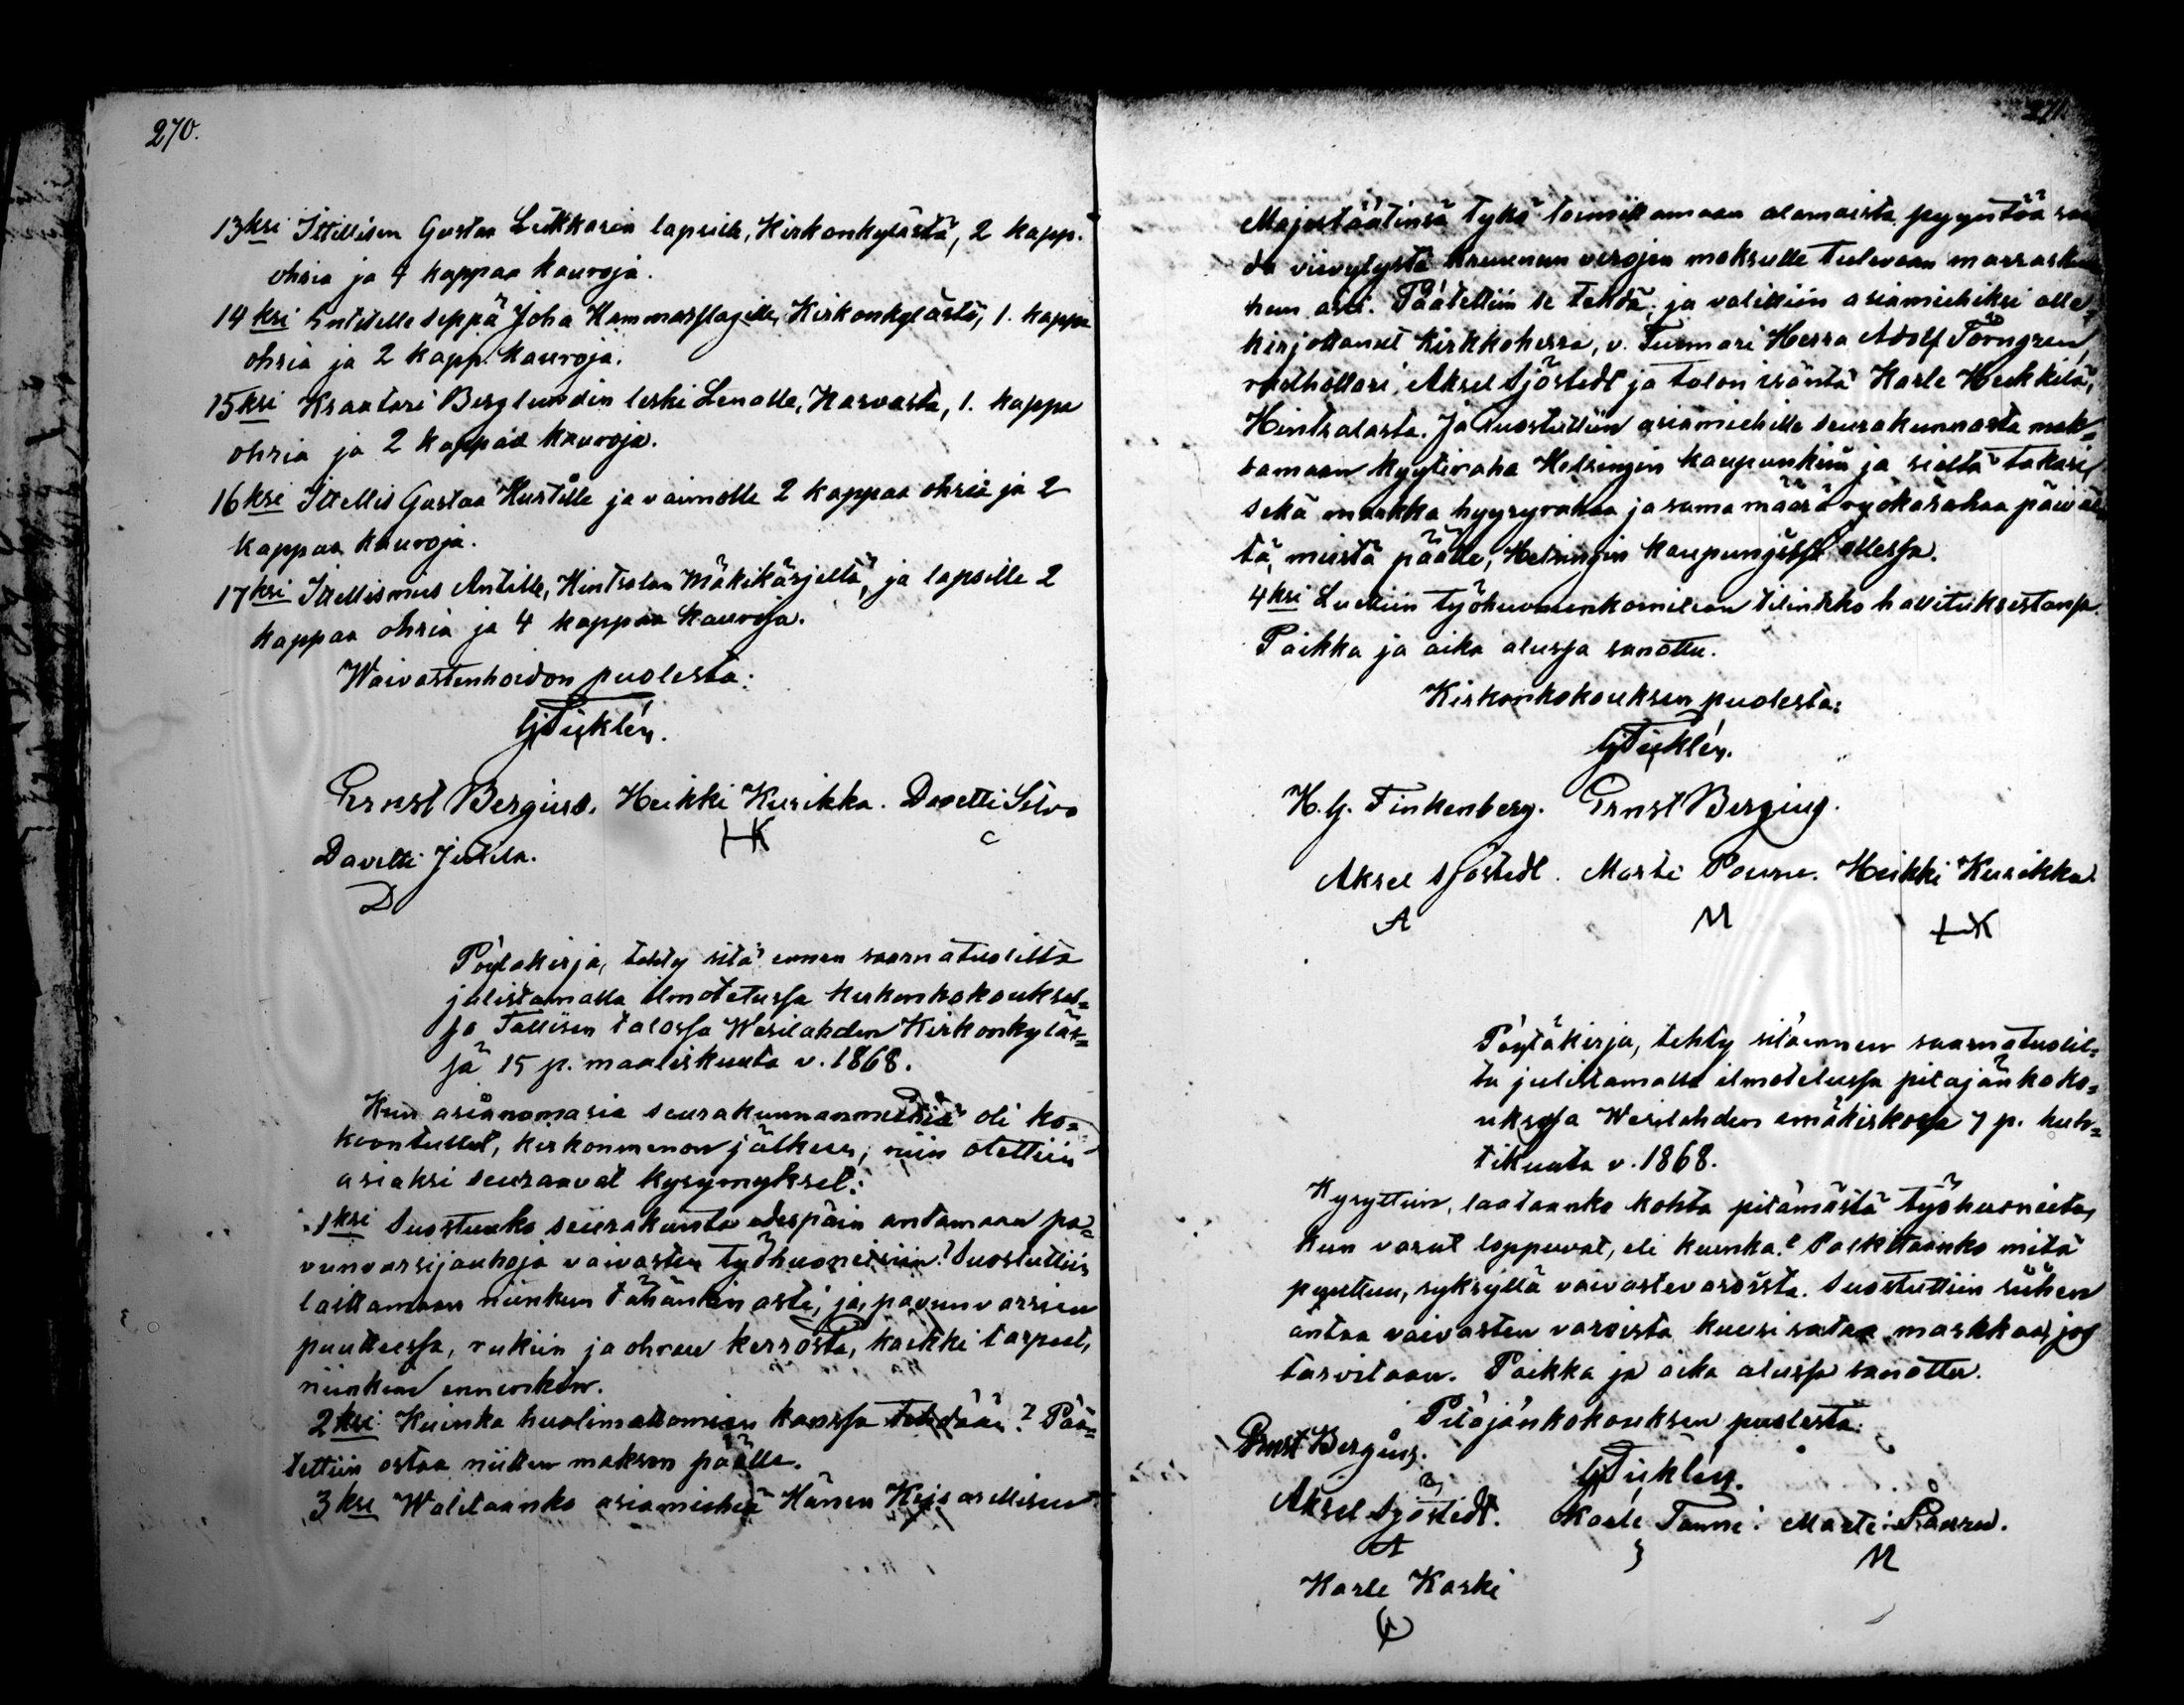 270.
13ksi Itellisen Gustaa Liukkarin lapsille, Kirkonkylästä, 2 kapp.
ohria ja 4 kappaa kauroja.
14ksi Entiselle seppä Joha Hammarslagille, Kirkonkylästä, 1. kappa
ohria ja 2 kapp. kauroja.
15ksi Kraatari Berglundin leski Lenalle, Narvasta, 1. kappa
ohria ja 2 kappaa kauroja.
16ksi Itellis Gustaa Kustille ja vaimolle 2 kappaa ohria ja 2
kappaa kauroja.
17ksi Itellismies Antille, Hintsalan Mäkikärjeltä, ja lapsille 2
kappaa ohria ja 4 kappaa kauroja.
Waivastenhoidon puolesta:
GTicklén.
Ernst Bergius. Heikki Kurikka. Davetti Silvo
HK
Davetti Jutila.
D
Pöytäkirja, tehty sitä ennen saarnatuolilta
julistamalla ilmotetussa kirkonkokoukses=
sa Tallisen talossa Wesilahden Kirkonkyläs=
sä 15 p. maaliskuuta v. 1868.
Kun asianomasia seurakunnanmiehiä oli ko=
koontullet, kirkonmenon jälkeen, niin otettiin
asiaksi seuraavat kysymykset:
1ksi Suostuuko seurakunta edespäin antamaan pa=
vunvarsijauhoja vaivasten työhuoneisiin? Suostuttiin
laittamaan niinkun tähänkin asti, ja, pavunvarsien
puutteessa, rukiin ja ohran kerrosta, kaikki tarpeet,
niinkun ennenkin.
2ksi Kuinka huolimattomien kanssa tehdään? Pää=
tettiin ostaa niitten makson päälle.
3ksi Walitaanko asiamiehiä Hänen Keisarillisen
271.
Majestäätinsä tykö toimittamaan alamaista pyyntöä saa
da viivytystä kruunun verojen maksulle tulevaan marrasku
hun asti. Päätettiin se tehdä, ja valittiin asiamiehiksi alle=
kirjottanut Kirkkoherra, v. Tuomari Herra Adolf Törngren,
rusthollari Aksel Sjöstedt ja talon isäntä Karle Heikkilä,
Hintsalasta. Ja suostuttiin asiamiehille seurakunnasta mak=
samaan kyytiraha Helsingin kaupunkiin ja sieltä takasi,
sekä markka hyyryrahaa ja sama määrä ryokarahaa päiväl
tä, miestä päälle, Helsingin kaupungissa ollessa.
4ksi Luettiin työhuoneenkomitean tilintekko hallituksestansa.
Paikka ja aika alussa sanottu.
Kirkonkokouksen puolesta:
GTicklén.
K. G. Finkenberg. Ernst Bergius.
Aksel Sjöstedt. Marti Pourru. Heikki Kurikka
A M HK
Pöytäkirja, tehty sitäennen saarnatuolil=
ta julistamalla ilmotetussa pitäjänkoko=
uksessa Wesilahden emäkirkossa 7 p. huh=
tikuuta v. 1868.
Kysyttiin, laataanko kohta pitämästä työhuoneita,
kun varat loppuvat, eli kuinka? Palkitaanko mitä
puuttuu, syksyllä vaivastevaroista. Suostuttiin siihen
antaa vaivasten varoista kuusisataa markkaa, jos
tarvitaan. Paikka ja aika alussa sanottu.
Pitäjänkokouksen puolesta:
Ernst Bergius. GTicklén.
Aksel Sjöstedt. Karle Tanni. Marti Pourru.
A M
Karle Koski